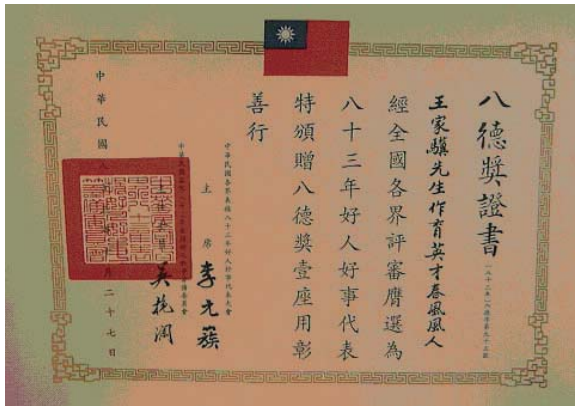 八德獎證書
王家驥先生作育英才春風風人
經全國各界評審膺選為
八十三年好人好事代表
特頒贈八德獎壹座用彰
善行
中華民國各界表揚八十三年好人好事代表大會
主席 李元簇
吳挽瀾
中華民國八十 月二十七日